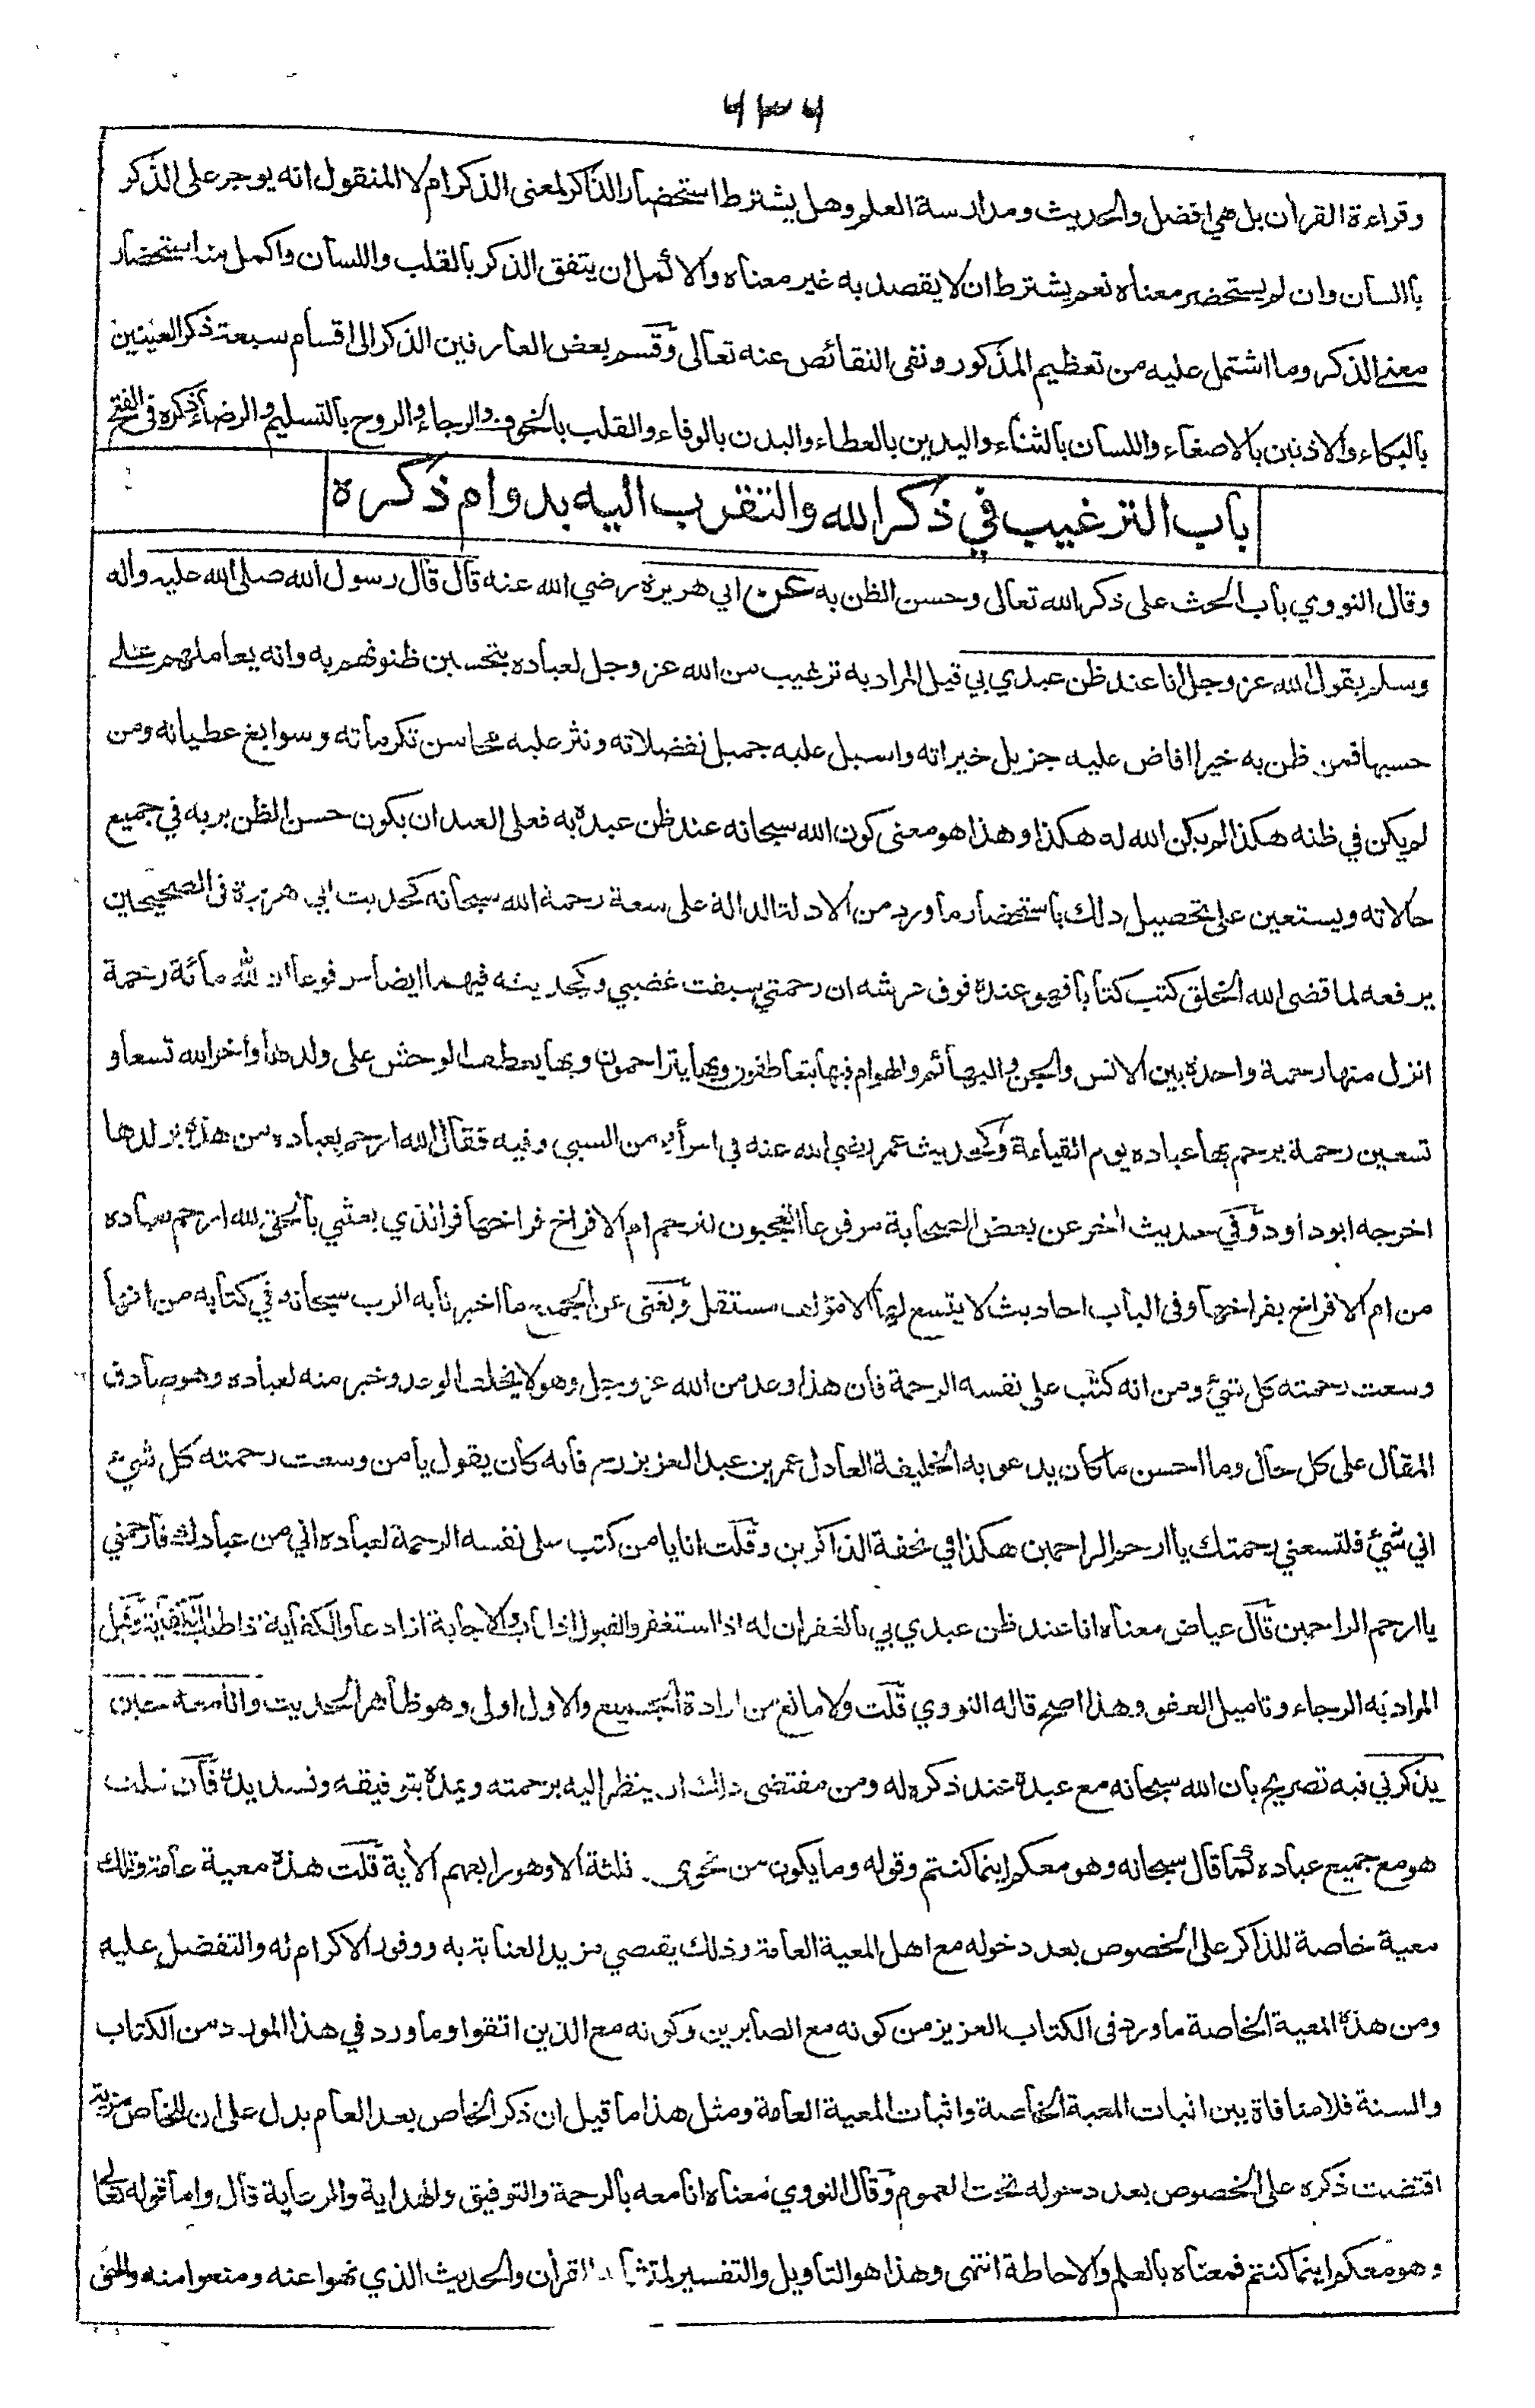 ٦٣٦
وقراءة القرأن بل هي افضل والحديث ومدارسة العلم وهل يشترط استحضار الذاكر لمعنى الذكر ام لا المنقول انه يوجر على الذكر
باللسان وان لم يستحضر معناه نعم يشترط ان لا يقصد به غير معناه والاكمل ان يتفق الذكر بالقلب واللسان واكمل منه استحضار
معنى الذكر وما اشتمل عليه من تعظيم المذكور ونفى النقائص عنه تعالى وقسم بعض العارفين الذكر الى اقسام سبعة ذكر العينين
بالبكاء والاذنين بالاصغاء واللسان بالثناء واليدين بالعطاء والبدن بالوفاء والقلب بالخوف والرجاء والروح بالتسليم والرضاء ذكره فى الفتح
باب الترغيب في ذكر الله والتقرب اليه بدوام ذكره
وقال النووي باب الحث على ذكر الله تعالى وحسن الظن به عن ابي هريرة رضي الله عنه قال قال رسول الله صلى الله عليه واله
وسلم يقول الله عز وجل انا عند ظن عبدي بي قيل المراد به ترغيب من الله عز وجل لعباده بتحسين ظنونهم به وانه يعاملهم على
حسبها فمن ظن به خيرا افاض عليه جزيل خيراته واسبل عليه جميل تفضلاته ونثر عليه محاسن تكرماته وسوابغ عطياته ومن
لم يكن في ظنه هكذا لم يكن الله له هكذا وهذا هو معنى كون الله سبحانه عند ظن عبده به فعلى العبد ان يكون حسن الظن بربه في جميع
حالاته ويستعين على تحصيل ذلك باستحضار ما ورد من الادلة الدالة على سعة رحمة الله سبحانه كحديث ابي هريرة فى الصحيحين
يرفعه لما قضى الله الخلق كتب كتابا فهو عنده فوق عرشه ان رحمتي سبقت غضبي وكحديثه فيهما ايضا مرفوعا ان لله مائة رحمة
انزل منها رحمة واحدة بين الانس والجن والبهائم والهوام فبها يتعاطفون وبها يتراحمون وبها يعطف الوحش على ولدها واخر الله تسعا و
تسعين رحمة يرحم بها عباده يوم القيامة وكحديث عمر رضي الله عنه في امرأة من السبي وفيه فقال الله ارحم بعباده من هذه بولدها
اخرجه ابو داود وفي حديث اخر عن بعض الصحابة مرفوعا اتعجبون لرحم ام الافراخ فراخها فوالذي بعثني بالحق لله ارحم بعباده
من ام الافراخ بفراخها وفى الباب احاديث لا يتسع لها الا مؤلف مستقل ويغنى عن الجميع ما اخبرنا به الرب سبحانه في كتابه من انها
وسعت رحمته كل شئ ومن انه كتب على نفسه الرحمة فان هذا وعد من الله عز وجل وهو لا يخلف الوعد وخبر منه لعباده وهو صادق
المقال على كل حال وما احسن ما كان يدعو به الخليفة العادل عمر بن عبد العزيز رح فانه كان يقول يا من وسعت رحمته كل شئ
اني شئ فلتسعني رحمتك يا ارحم الراحمين هكذا في تحفة الذاكرين وقلت انا يا من كتب على نفسه الرحمة لعباده اني من عبادك فارحمني
يا ارحم الراحمين قال عياض معناه انا عند ظن عبدي بي بالغفران له اذا استغفر والقبول اذا تاب والاجابة اذا دعا والكفاية اذا طلب الكفاية وقيل
المراد به الرجاء وتاميل العفو وهذا اصح قاله النووي قلت ولا مانع من ارادة الجميع والاول اولى وهو ظاهر الحديث وانا معه حين
يذكرني فيه تصريح بان الله سبحانه مع عبده عند ذكره له ومن مقتضى ذلك ان ينظر اليه برحمته ويمده بتوفيقه وتسديده فان قلت
هو مع جميع عباده كما قال سبحانه وهو معكم اينما كنتم وقوله وما يكون من نجوى ثلثة الا وهو رابعهم الأية قلت هذه معية عامة وتلك
معية خاصة للذاكر على الخصوص بعد دخوله مع اهل المعية العامة وذلك يقتضي مزيد العناية به ووفور الاكرام له والتفضل عليه
ومن هذه المعية الخاصة ما ورد فى الكتاب العزيز من كونه مع الصابرين وكونه مع الذين اتقوا وما ورد في هذا المورد من الكتاب
والسنة فلا منافاة بين اثبات المعية الخاصة واثبات المعية العامة ومثل هذا ما قيل ان ذكر الخاص بعد العام يدل على ان للخاص مزية
اقتضت ذكره على الخصوص بعد دخوله تحت العموم وقال النووي معناه انا معه بالرحمة والتوفيق والهداية والرعاية قال واما قوله تعالى
وهو معكم اينما كنتم فمعناه بالعلم والاحاطة انتهى وهذا هو التاويل والتفسير القرأن والحديث الذي نهوا عنه ومنعوا منه والحق